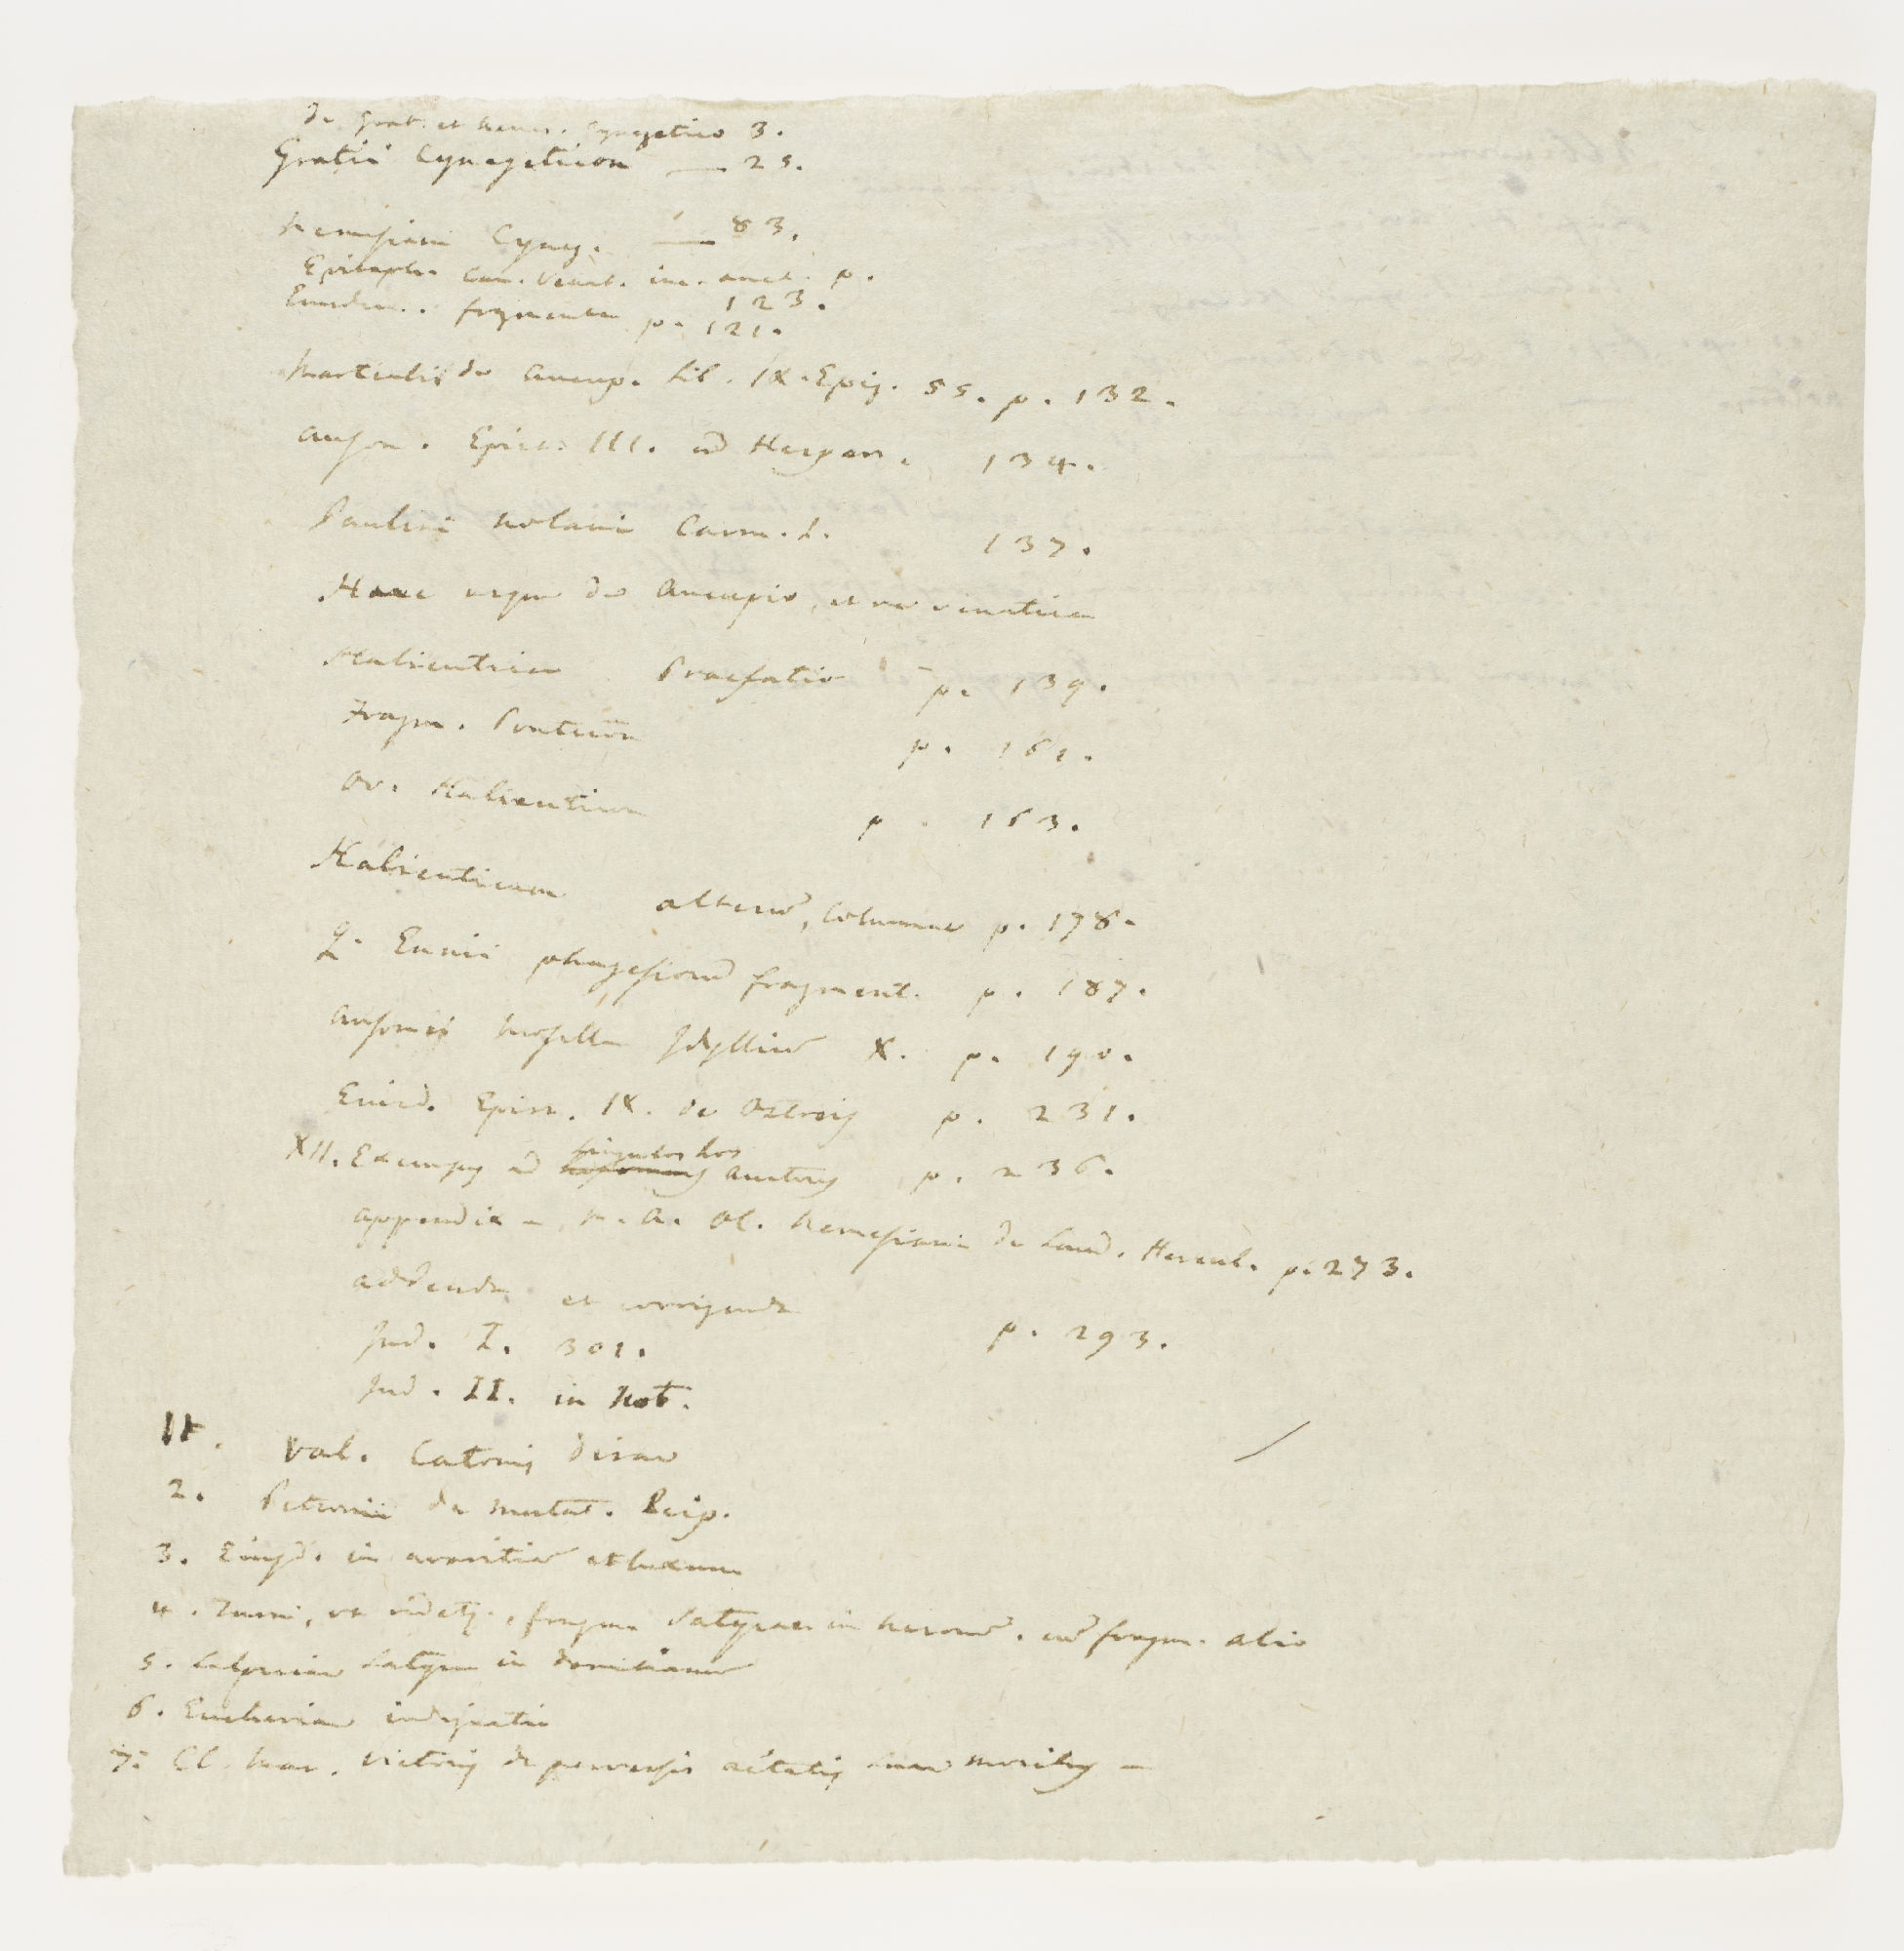 de Grat. et Nemes. Cynegetico 3.
Gratii Cynegeticon — 25.
Nemesiani Cyneg. — 83.
Epitaph. Can. Venat. inc. auct. p. 123.
Eiusdem. fragmenta p. 121.
Martialis de Aucup. Lib. IX. Epig. 55. p. 132.
Auson. Epist. III. ad 134.
Paulini Nolani Carm. I. 137.
Haec usque de Aucupio, et re venatica
Halieutica Praefatio p. 139.
Fragm. Ponticon p. 161.
Ov. Halieuticon p. 163.
Halieuticon alterum, Columnae p. 178.
Q. Ennii phagesiorum fragment. p. 187.
Ausonii Mosella Idyllium X. p. 190.
Eiusd. Epist. IX. de Ostreis p. 231.
singulos hos
XII. Excursus ad auctores p. 236.
Appendix – M. A. Ol. Nemesiani de Laud. Hercul. p. 273.
addenda et corrigenda p. 293.
Ind. I. 301.
Ind. II. in Not.
Val. Catonis Dirae
2. Petronii de mutat. Reip.
3. Eiusd. in avaritiam et luxum
4. Turni, ut videtur, fragm. Satyrae in Neronem. cum fragm. alio
5. Sulpiciae Satyra in Domitianum
6. Eucheriae indignatio
7. Cl. Mar. Victoris de perversis aetatis suae moribus –